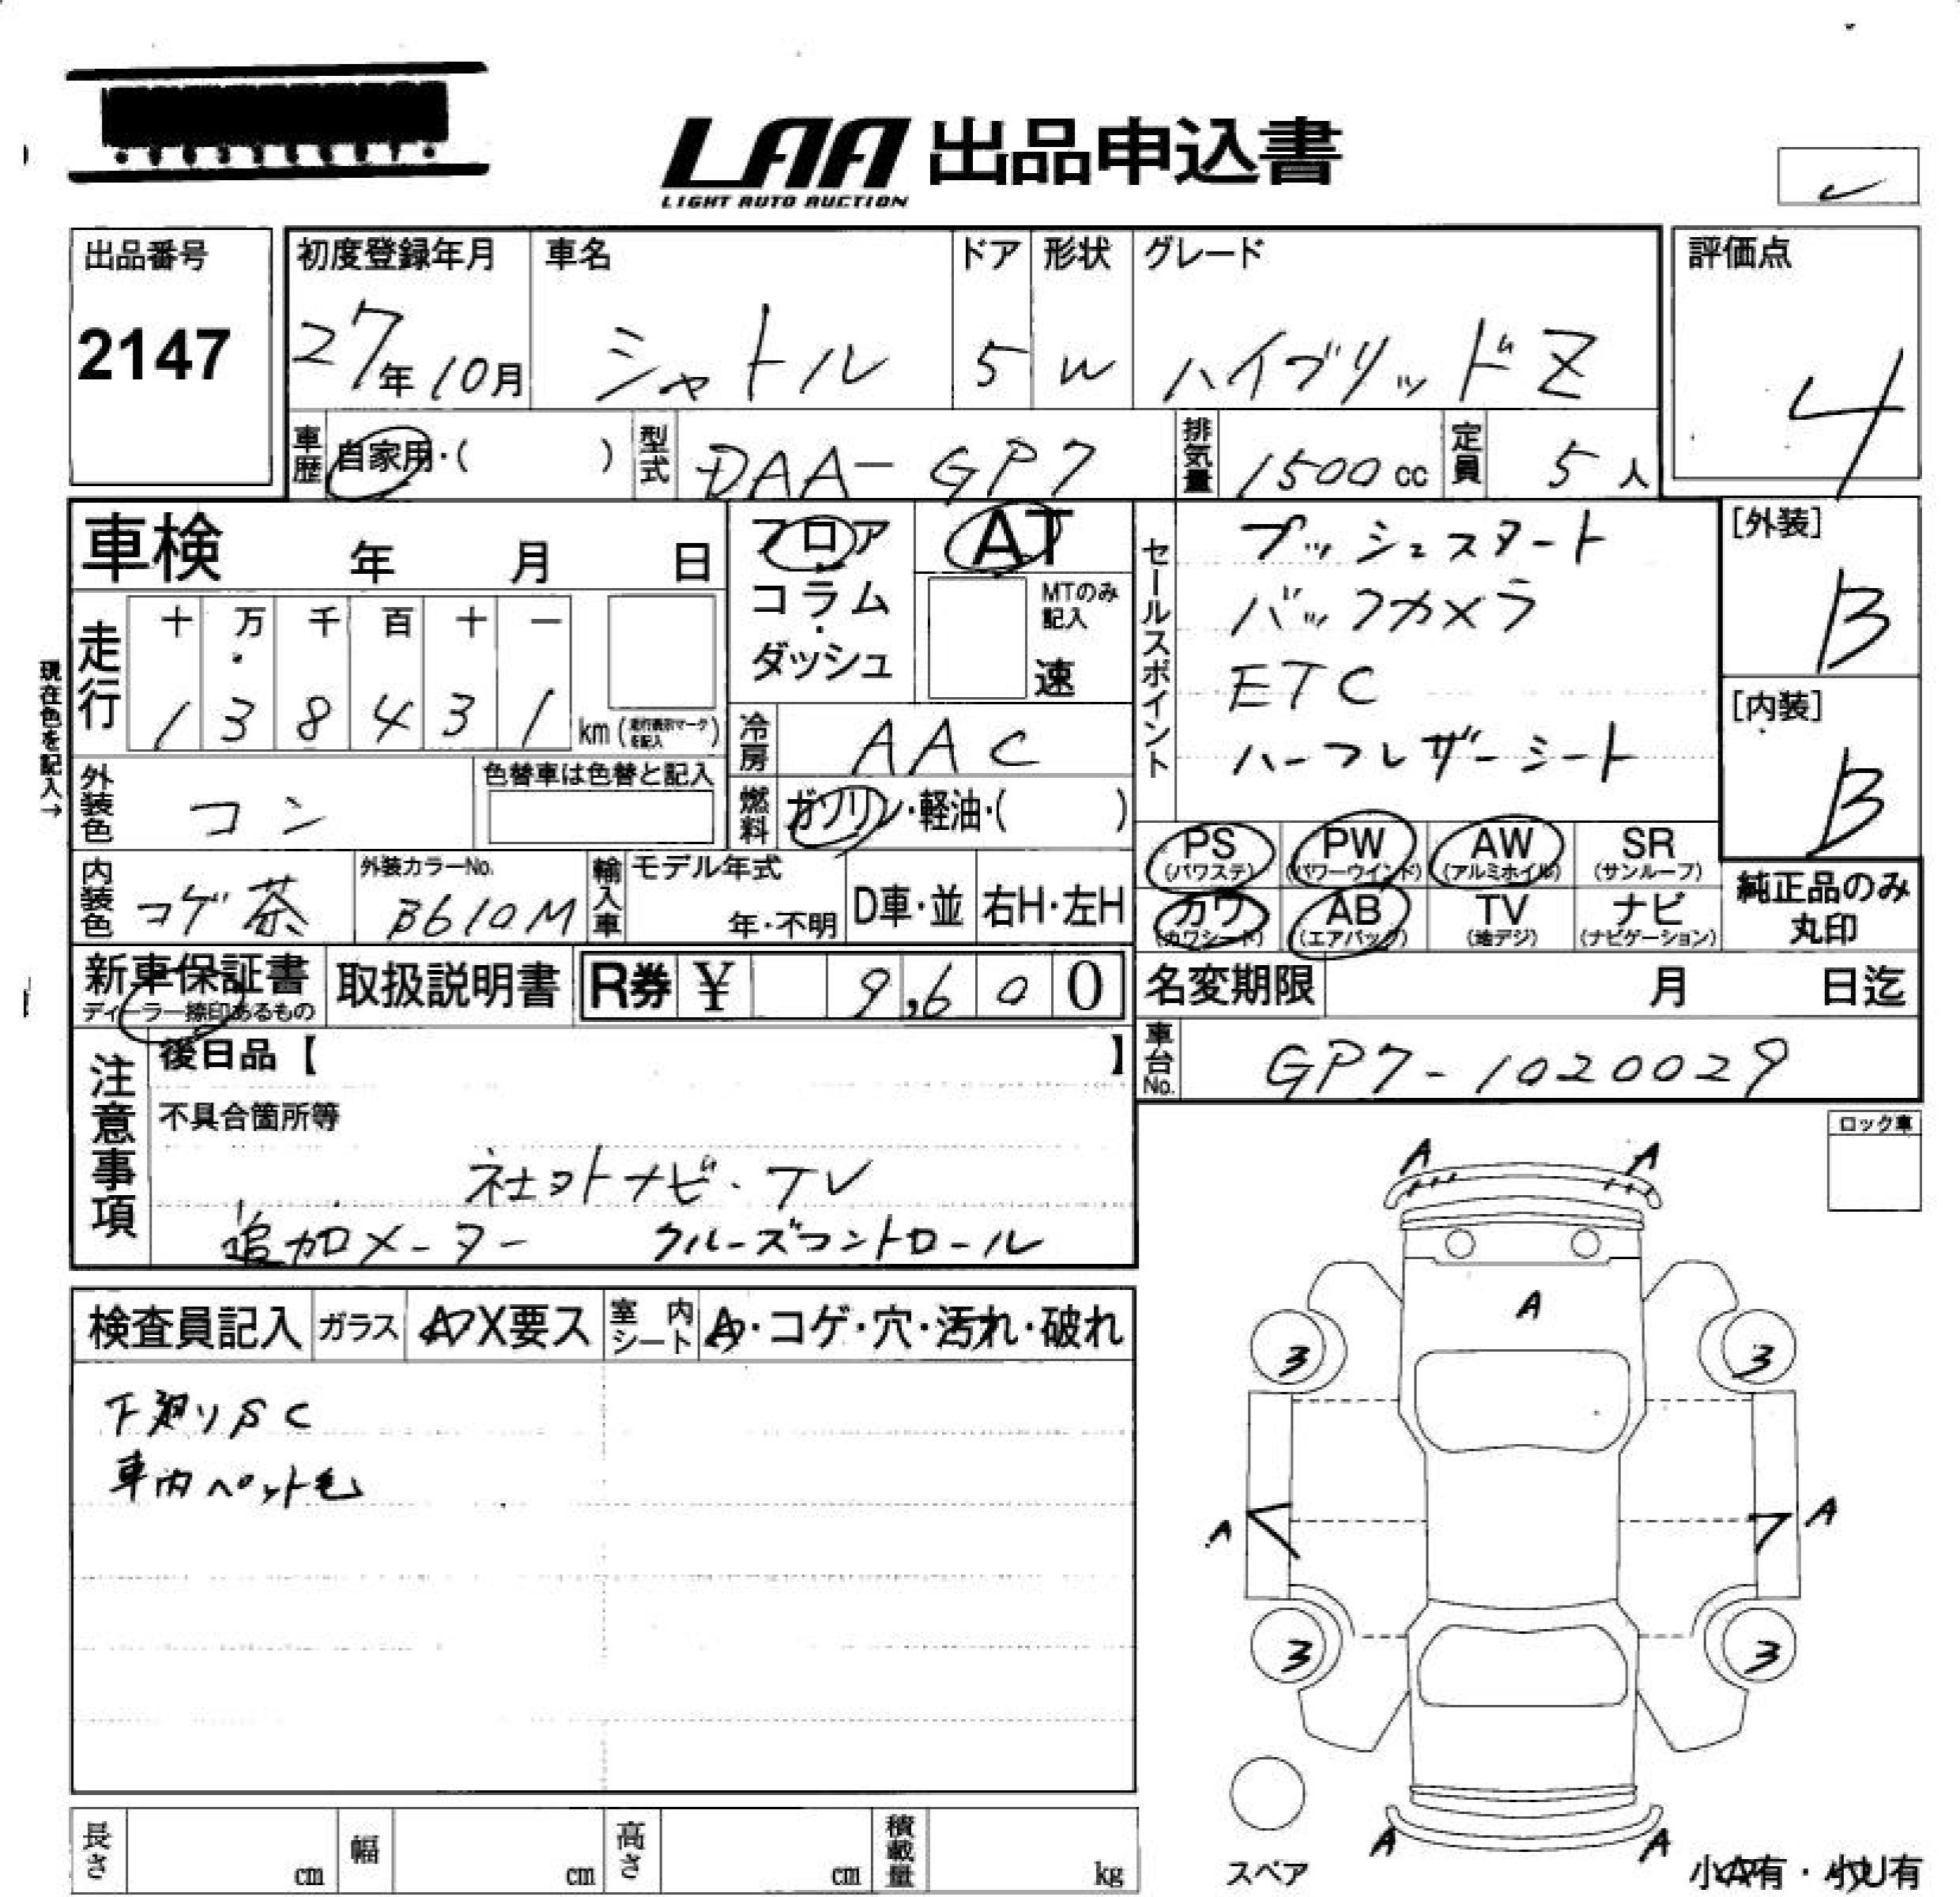 LAA 出品申込書
LIGHT AUTO AUCTION
出品番号
2147
初度登録年月 車名 ドア 形状 グレード
27年10月 シャトル 5 W ハイブリッドZ
評価点
4
車歴 自家用・( ) 型式 DAA-GP7 排気量 1500cc 定員 5人
車検 年 月 日
フロア
コラム
・
ダッシュ
AT
MTのみ
記入
速
走行 十 万 千 百 十 一
1 3 8 4 3 1 km
現在色を記入→
冷房 AAC
セールスポイント
プッシュスタート
バックカメラ
ETC
ハーフレザーシート
[外装]
B
[内装]
B
外装色 コン
色替車は色替と記入
燃料 ガソリン・軽油・( )
PS (パワステ) PW (パワーウインド) AW (アルミホイル) SR (サンルーフ)
カワ (カワシート) AB (エアバック) TV (地デジ) ナビ (ナビゲーション)
純正品のみ
丸印
内装色 コゲ茶
外装カラーNo.
B610M
輸入車 モデル年式
年・不明
D車・並 右H・左H
新車保証書
ディーラー捺印あるもの
取扱説明書 R券 ¥ 9,600
名変期限 月 日迄
車台No. GP7-1020029
注意事項
後日品【 】
不具合箇所等
社外ナビ・TV
追加メーター クルーズコントロール
ロック車
検査員記入 ガラス A・X要ス 室内シート A・コゲ・穴・汚れ・破れ
下廻りSC
車内ペット毛
A A
A
3 3
A A
3 3
A A
スペア
小A有・小U有
長さ cm 幅 cm 高さ cm 積載量 kg